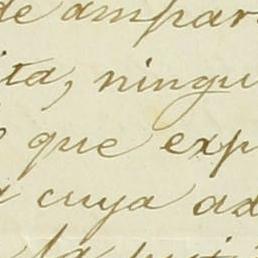 de ampar
ita, ningu
que exp
a cuya ad
la